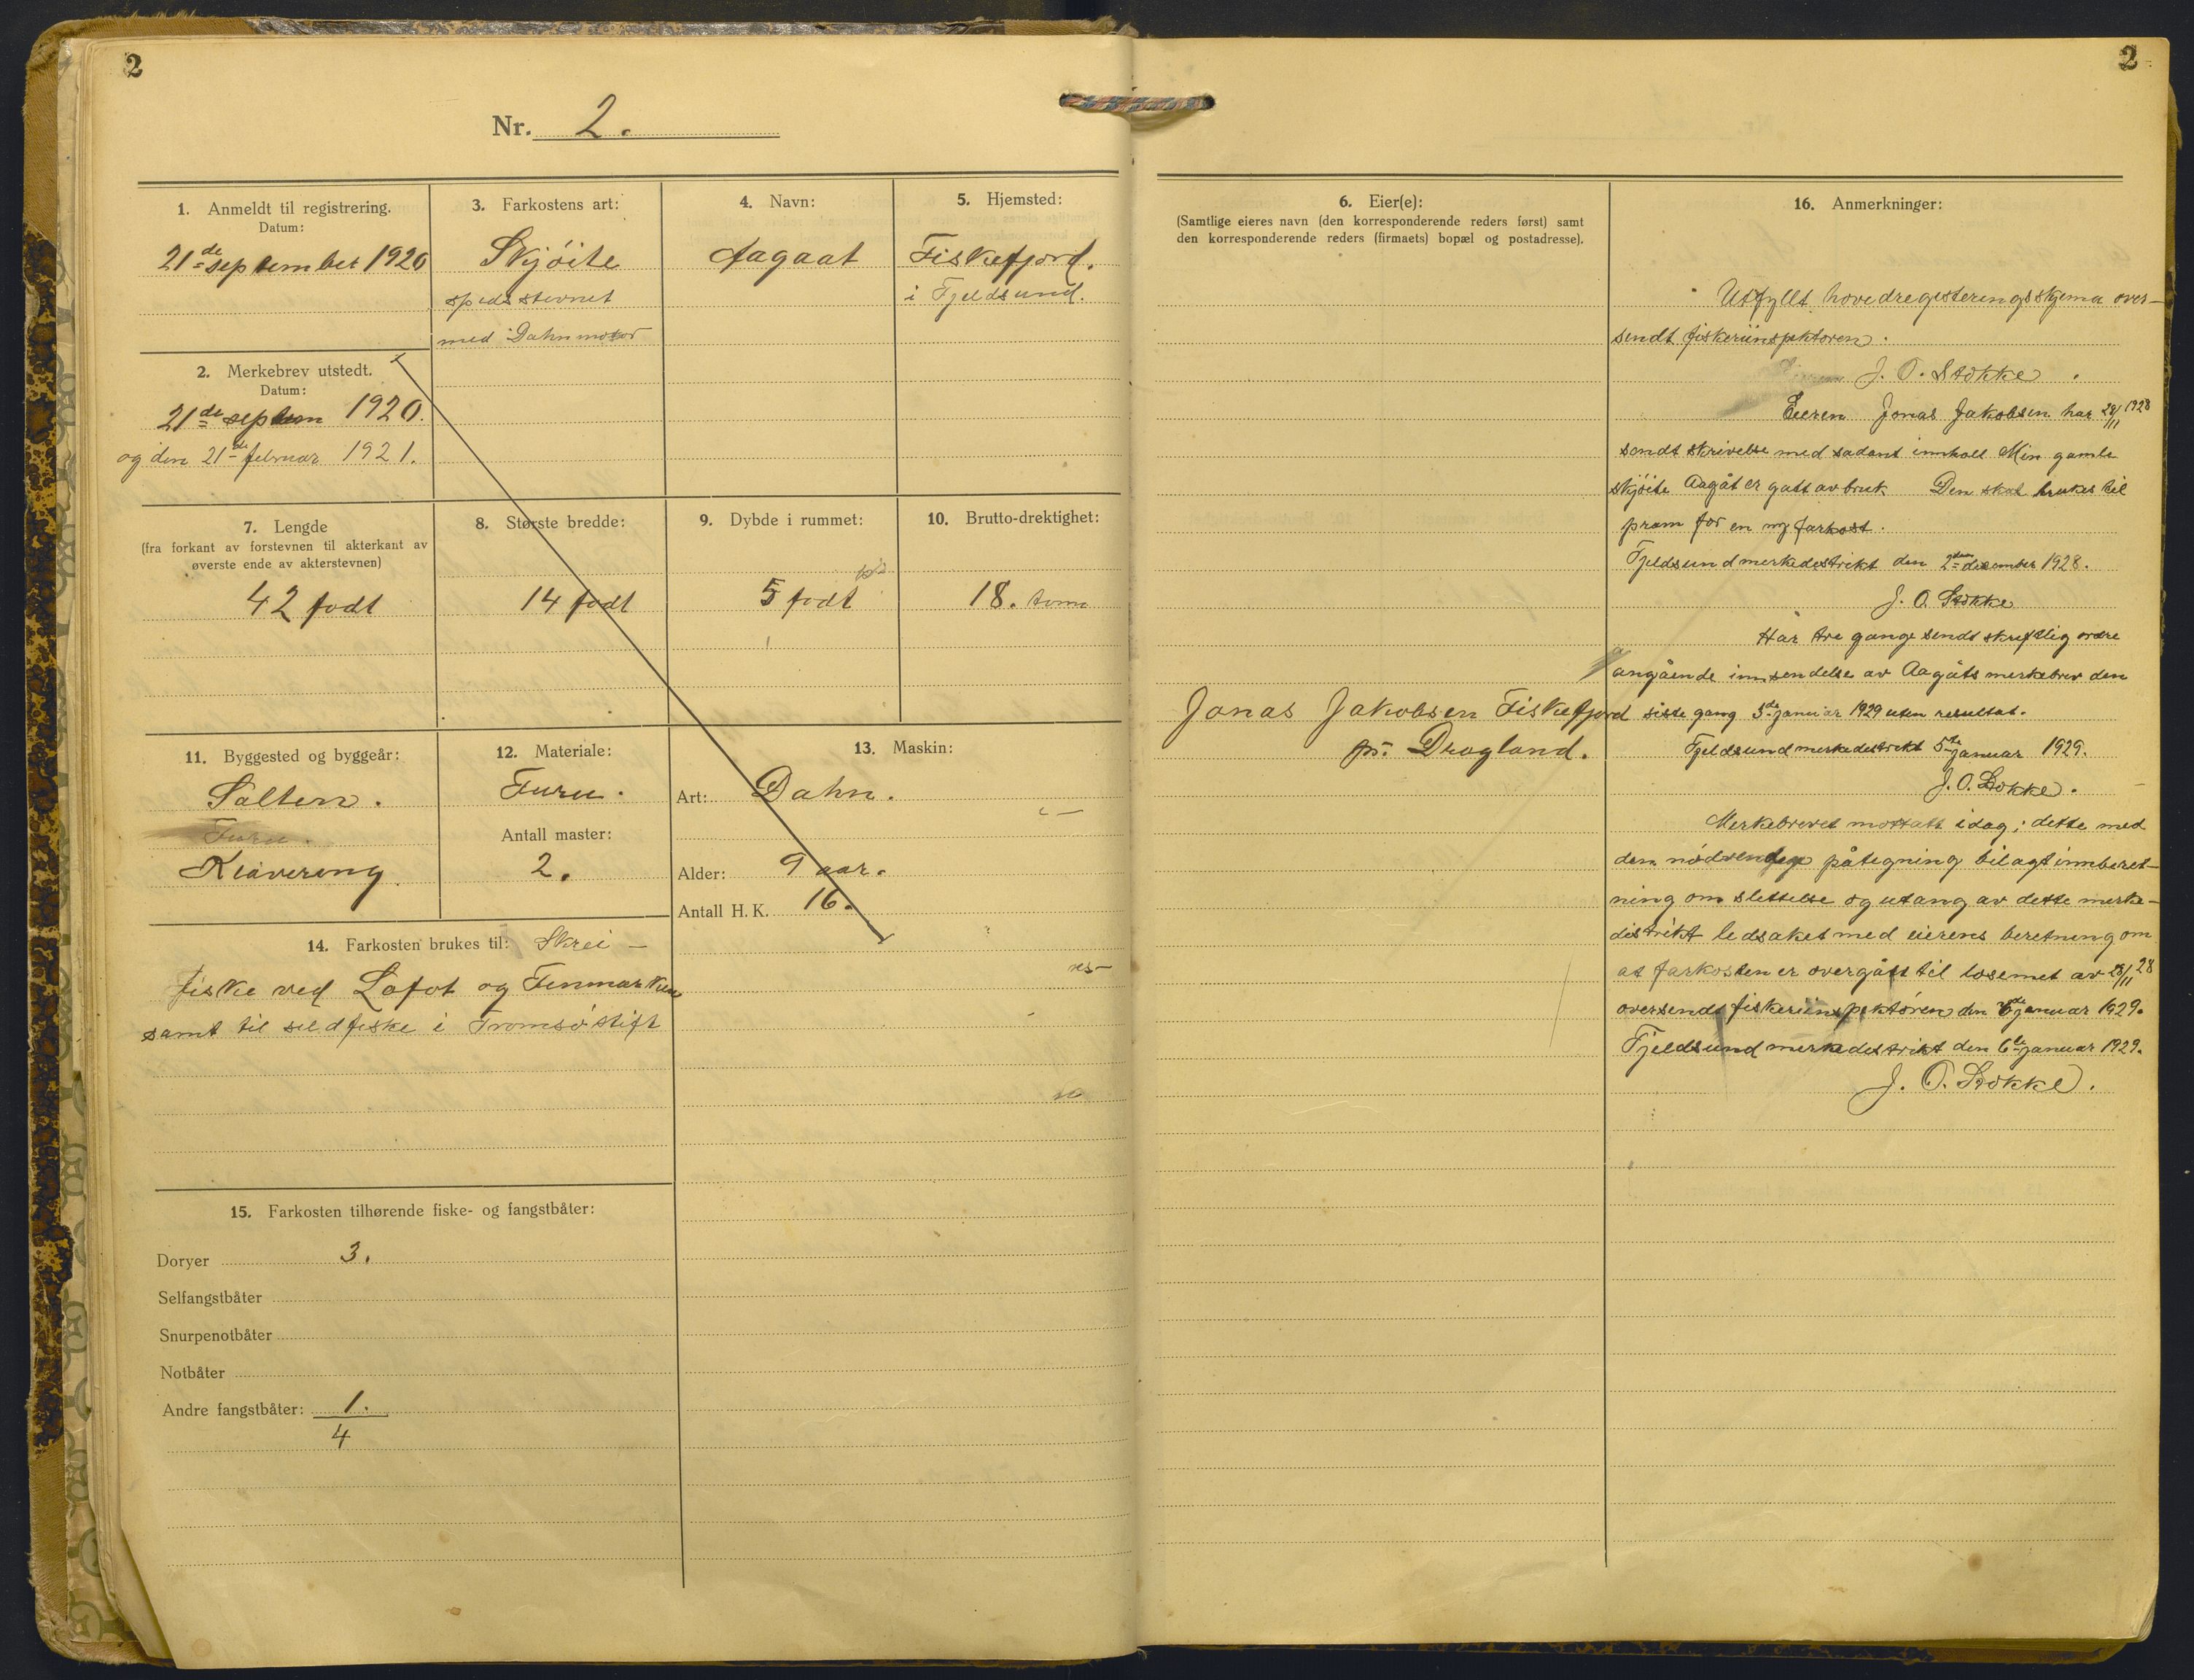 2
Nr. 2.
1. Anmeldt til registrering.
Datum:
21de september 1920
2. Merkebrev utstedt.
Datum:
21de septem 1920.
og den 21de februar 1921.
3. Farkostens art:
Skjöite
spedsstevnet
med Dahnmotor
4. Navn:
Aagaat
5. Hjemsted:
Fiskefjord.
i Fjeldsund.
7. Lengde
(fra forkant av forstevnen til akterkant av
øverste ende av akterstevnen)
42 fodt
8. Største bredde:
14 fodt
9. Dybde i rummet:
5 fodt
10. Brutto-drektighet:
18. tonn
11. Byggested og byggeår:
Salten.
Furu.
Kiøvereng.
12. Materiale:
Furu.
Antall master:
2.
13. Maskin:
Art: Dahn.
Alder: 9 aar.
Antall H. K. 16.
14. Farkosten brukes til: Skrei-
fiske ved Lofot og Finmarken
samt til sildfiske i Tromsö stift
15. Farkosten tilhørende fiske- og fangstbåter:
Doryer 3.
Selfangstbåter
Snurpenotbåter
Notbåter
Andre fangstbåter: 1.
4
2
6. Eier(e):
(Samtlige eieres navn (den korresponderende reders først) samt
den korresponderende reders (firmaets) bopæl og postadresse).
Jonas Jakobsen Fiskefjord
pr. Dragland.
16. Anmerkninger:
Utfyllt hovedregisteringsskjema over-
sendt fiskeriinspektoren.
J. O. Stokke.
Eieren Jonas Jakobsen har 28/11 1928
sendt skrivelse med sadant innholl Min gamle
skjöite Aagåt er gatt av bruk Den skal brukes til
pram for en ny farkost.
Fjeldsund merkedestrikt den 2den desember 1928.
J. O. Stokke
Har tre gange sendt skriftlig ordre
angående innsendelse av Aagåts merkebrev den
siste gang 5de januar 1929 uten resultat.
Fjeldsund merkedestrikt 5te januar 1929.
J. O. Stokke.
Merkebrevet mottatt idag; dette med
den nödvendige påtegning bilagt innberet-
ning om slettelse og utgang av dette merke-
distrikt ledsaket med eierens beretning om
at farkosten er overgått til losemet av 28/11 28
oversendt fiskeriinspektören den 6de januar 1929.
Fjeldsund merkedestrikt den 6te januar 1929.
J. O. Stokke.